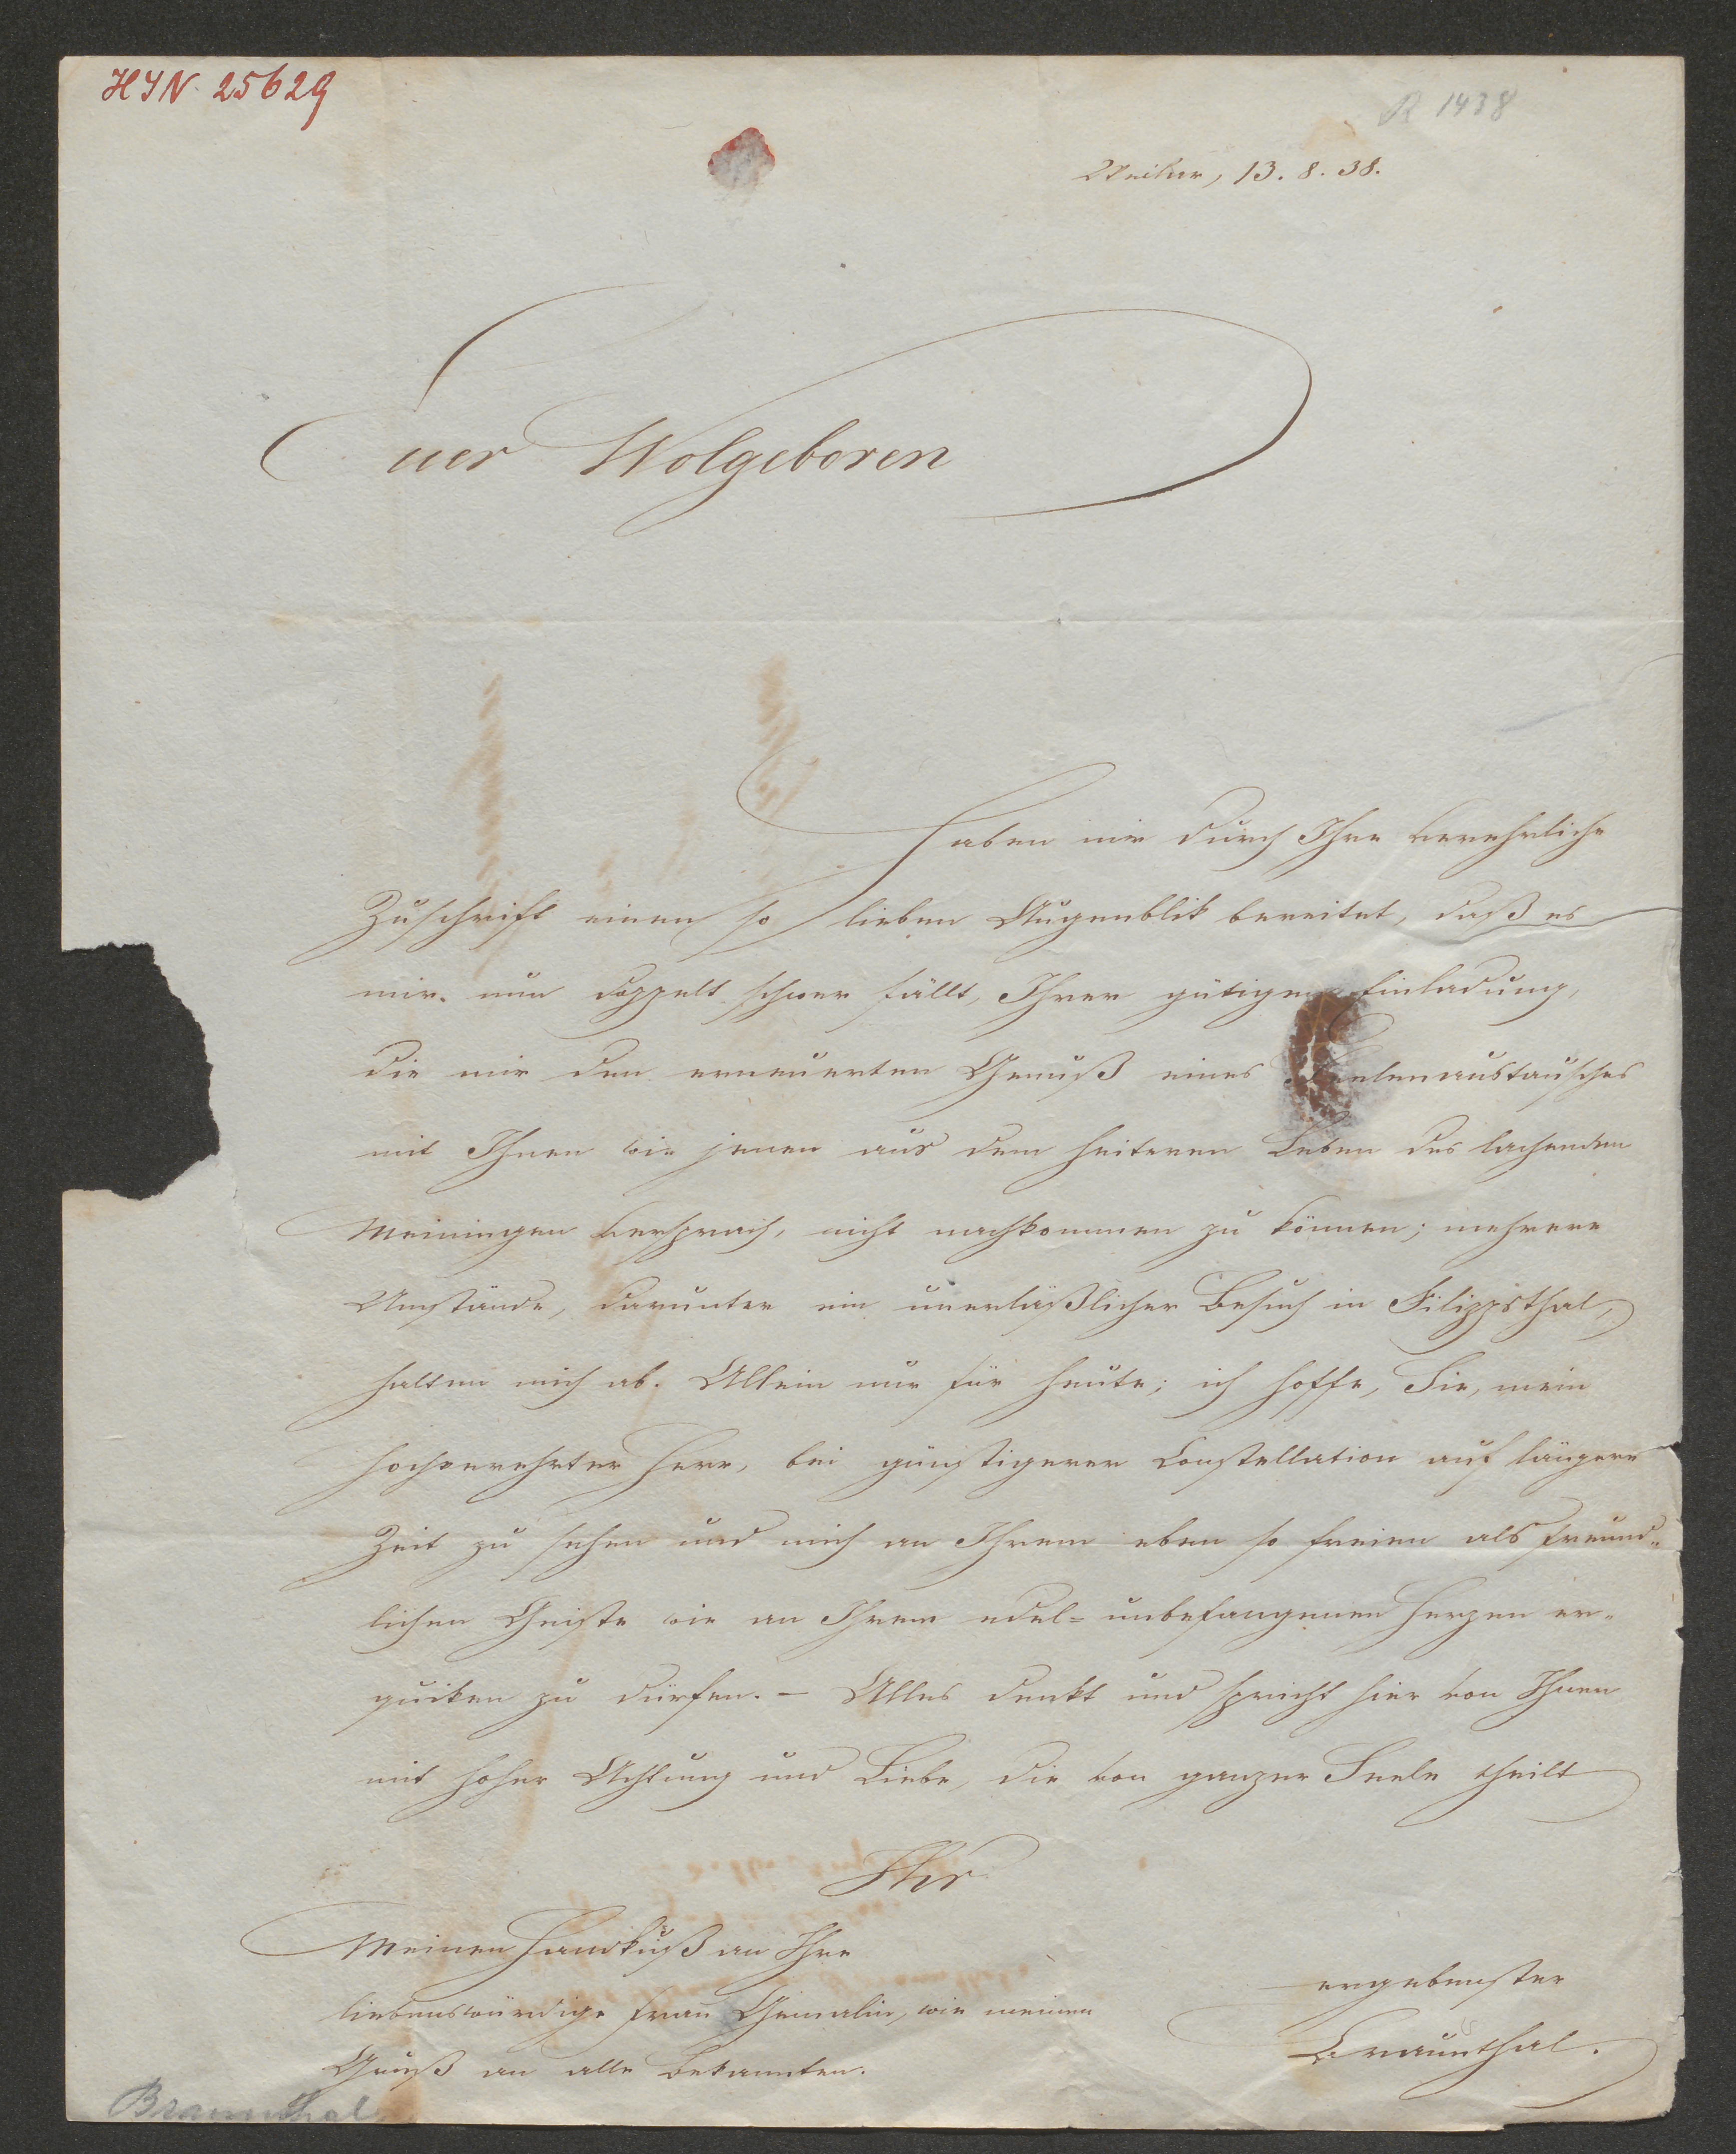 HIN. 25629
R 1438
Weiher, 13. 8. 38.
Euer Wolgeboren
haben mir durch Ihre verehrliche
Zuschrift einen so lieben Augenblik bereitet, daß es
mir nun doppelt schwer fällt, Ihrer gütigen Einladung,
die mir den erneuerten Genuß eines Seelenaustausches
mit Ihnen wie jenen aus dem heiteren Leben des lachenden
Meiningen versprach, nicht nachkommen zu können; mehrere
Umstände, darunter ein unerläßlicher Besuch in Filippsthal,
halten mich ab. Allein nur für heute; ich hoffe, Sie, mein
hochverehrter Herr, bei günstigerer Constellation auf längere
Zeit zu sehen und mich an Ihrem eben so freien als freund-
lichen Geiste wie an Ihrem edel-unbefangenen Herzen er-
quiken zu dürfen. – Alles denkt und spricht hier von Ihnen
mit hoher Achtung und Liebe, die von ganzer Seele theilt
Ihr
Meinen Handkuß an Ihre
liebenswürdige Frau Gemalin, wie meinen
Gruß an alle Bekannten.
ergebenster
Braunthal.
Braunthal